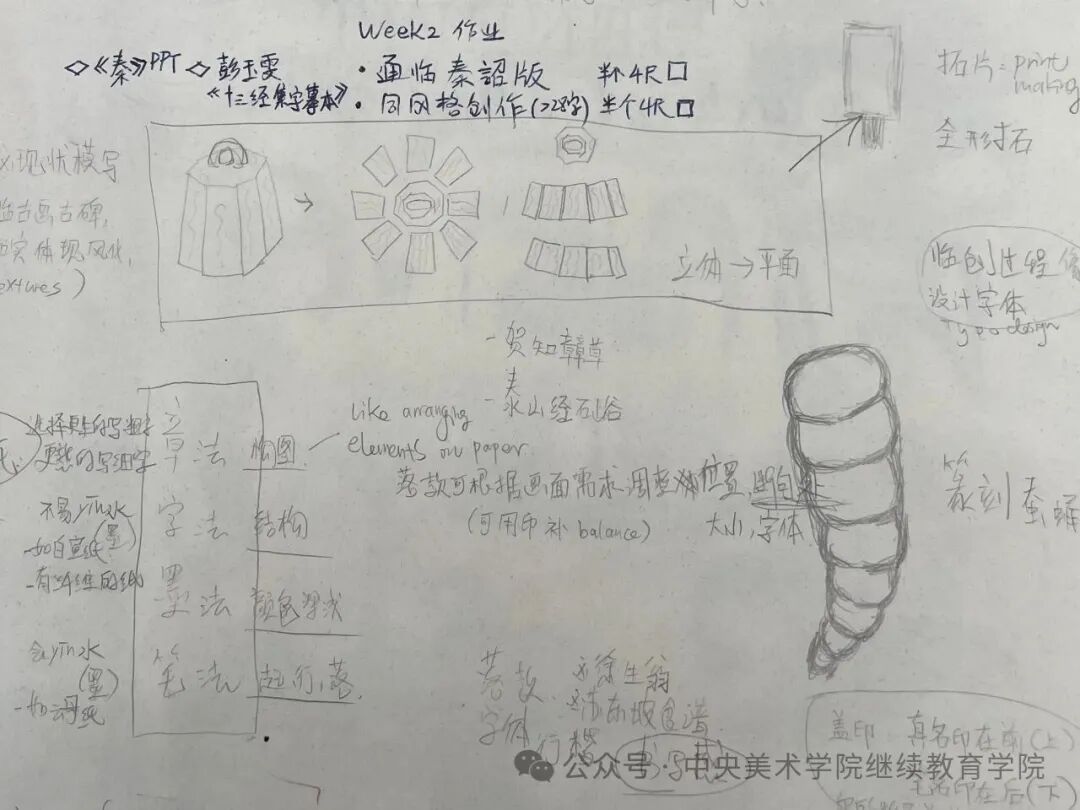 Week2 作业
◇《秦》PPT ◇ 彭玉雯
· 通临秦詔版 半个4尺 □
《十三经集字摹本》
· 同风格创作(>28字) 半个4尺 □
拓片: print making
全形拓
现状模写
临古画古碑,
实体现风化,
立体→平面
临创过程
设计字体
Typo design
- 贺知章草
- 泰山经石峪
选择
章法 构图
like arranging
elements on paper.
落款可根据画面需求调整 位置,
(可用印补 balance) 大小,字体
字法 结构
不易yin水
(墨)
-如白宣纸
-有纤维的纸
墨法 颜色深浅
笔法 起,行,落.
会yin水
(墨)
篆刻 蚕蛹
落款 徐生翁
苏东坡食谱
字体 行楷
盖印 真名印在前(上)
印在后(下)
公众号·中央美术学院继续教育学院